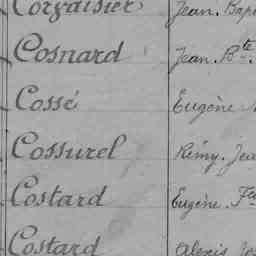 Corvaisier Jean. Bap
Cosnard Jean. Bte.
Cossé Eugène
Cossurel Rémy. Jea
Costard Eugène. F
Costard Alexis Jo